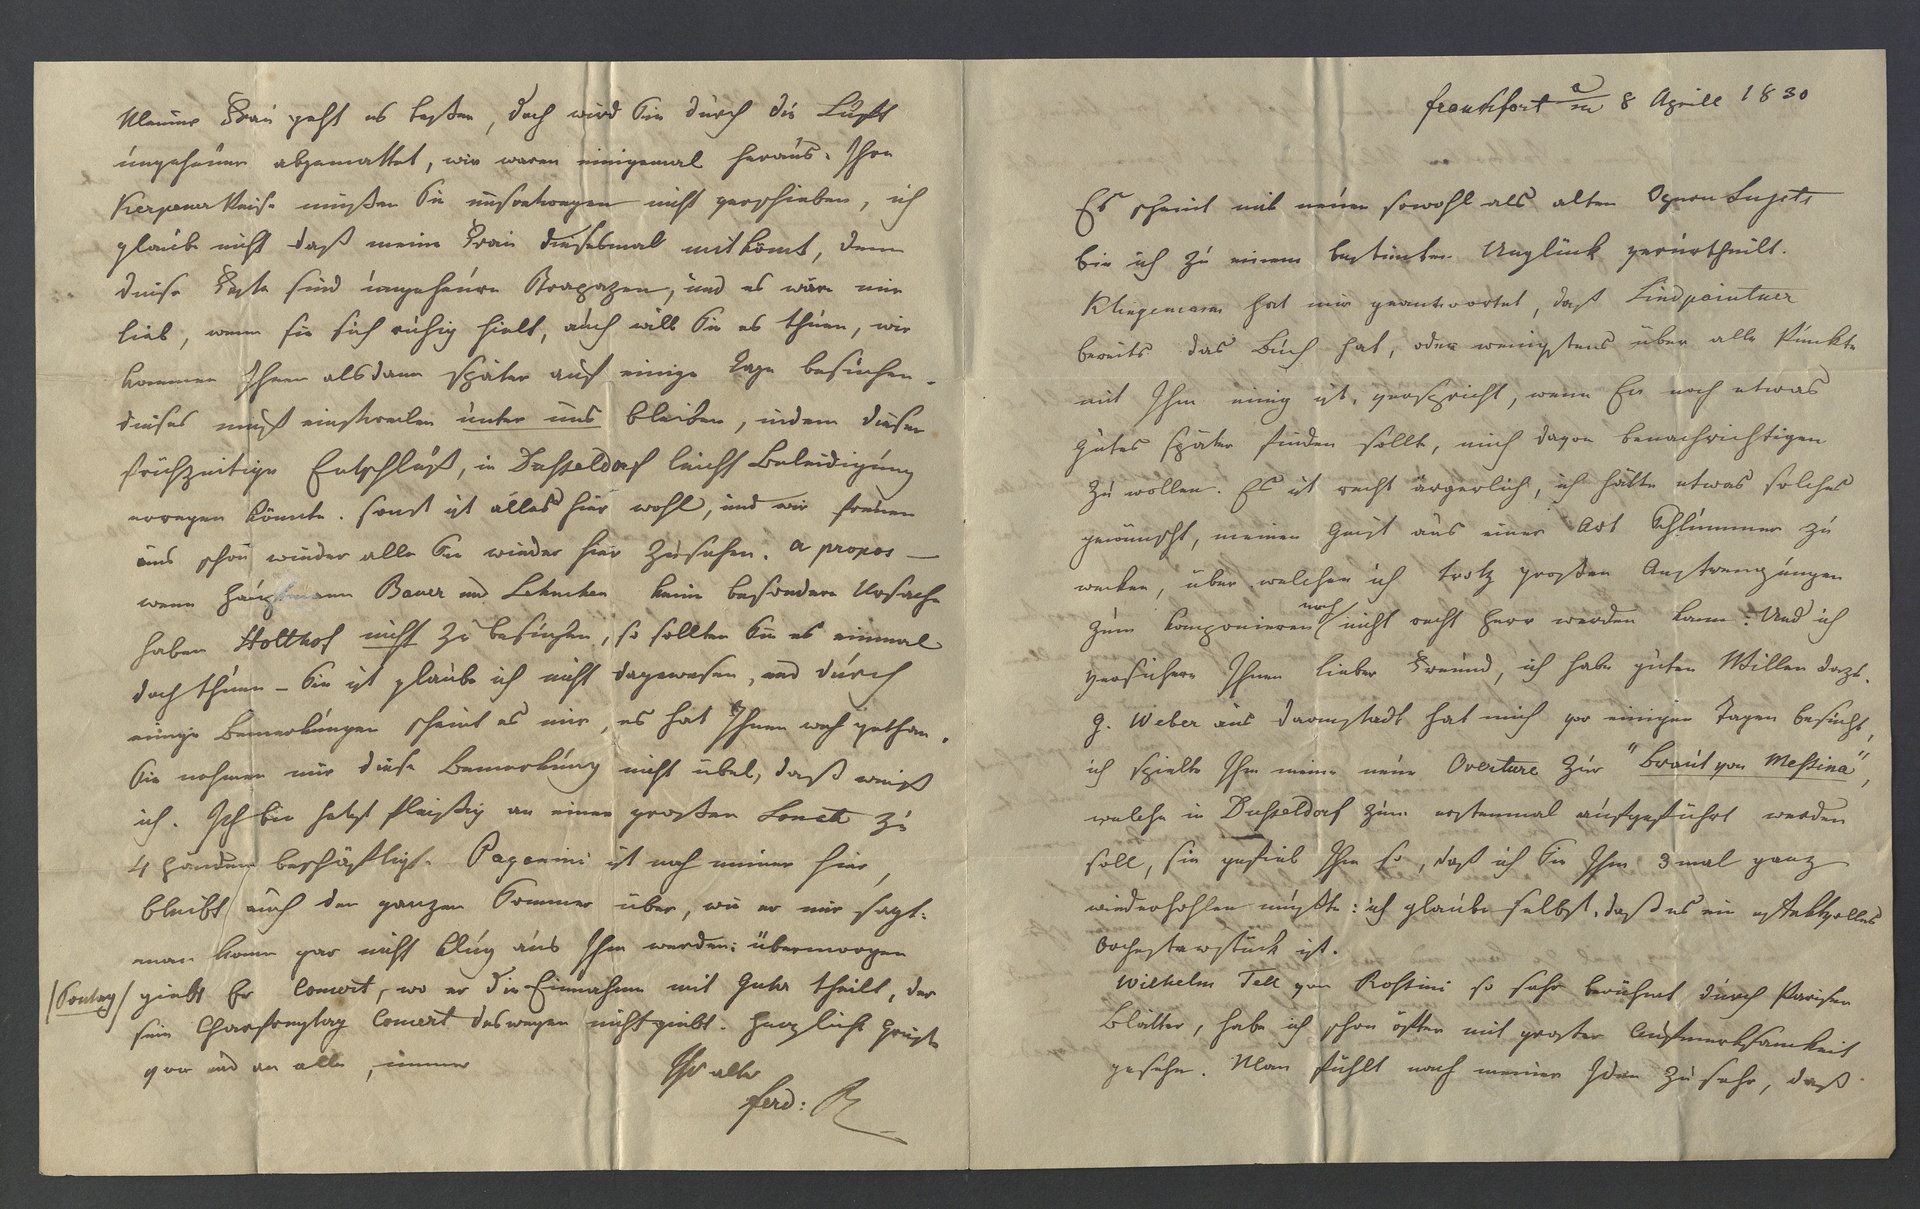 Frankfort a/m 8 Aprill 1830
Es scheint mit neuen sowohl als alten Opern Sujets
bin ich zu einem bestimten Unglück verurtheilt.
Klingemann hat mir geantwortet, daß Lindpaintner
bereits das Buch hat, oder wenigstens über alle Punkte
mit Ihm einig ist, verspricht, wenn Er noch etwas
gutes später finden sollte, mich davon benachrichtigen
zu wollen. Es ist recht ärgerlich, ich hätte etwas solches
gewünscht, meinen Geist aus einer Art Schlummer zu
wecken, über welchen ich trotz großen Anstrengungen
zum komponieren noch nicht recht Herr werden kann. Und ich
versichere Ihnen lieber Freund, ich habe guten Willen dazu.
G. Weber aus Darmstadt hat mich vor einigen Tagen besucht,
ich spielte Ihm meine neue Overture zur "Braut von Meßina",
welche in Dusseldorf zum erstenmal aufgeführt werden
soll, sie gefiel Ihm so, daß ich Sie Ihm 3 mal ganz
wiederhohlen mußte: ich glaube selbst, daß es ein effektvolles
Orchesterstück ist.
Wilhelm Tell von Roßini so sehr berühmt durch Pariser
Blätter, habe ich schon öfter mit groster Aufmerksamkeit
gesehn. Man fühlt nach meiner Idee zu sehr, daß
Meiner Frau geht es besser, doch wird Sie durch die Luft
ungeheuer abgemattet, wir waren einigemal heraus. Ihre
Kerpener Reise müßen Sie unsertwegen nicht verschieben, ich
glaube nicht daß meine Frau diesesmal mitkömt, denn
diese Feste sind ungeheure Strapazen, und es wäre mir
lieb, wenn sie sich ruhig hielt, auch will Sie es thuen, wir
kommen Ihnen alsdann später auf einige Tage besuchen.
dieses muß einstweilen unter uns bleiben, indem dieser
frühzeitige Entschluß, in Dusseldorf leicht Beleidigung
erregen könnte. sonst ist alles hier wohl, und wir freuen
uns schon wieder alle Sie wieder hier zu sehen. a propos —
wenn Hauptmann Bauer und Lehnchen keine besondere Ursache
haben Holthof nicht zu besuchen, so sollten Sie es einmal
doch thuen – Sie ist glaube ich nicht dagewesen, und durch
einige Bemerkungen scheint es mir, es hat Ihnen weh gethan.
Sie nehmen mir diese Bemerkung nicht übel, daß weiß
ich. Ich bin jetzt fleißig an einer großen Sonate zu
4 Händen beschäftigt. Paganini ist noch immer hier,
bleibt auch den ganzen Sommer über, wie er mir sagt.
man kann gar nicht klug aus Ihm werden: übermorgen
/Sontag/ giebt Er Concert, wo er die Einnahme mit Guhr theilt, der
sein Charfreytag Concert deswegen nicht giebt. Herzliche Grüße
von und an alle, immer
Ihr alter
Ferd: R